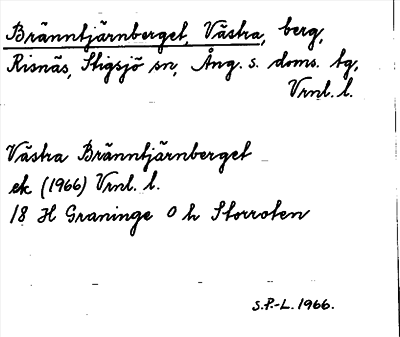 Bränntjärnberget, Västra, berg,
Risnäs, Stigsjö sn, Ång. s. doms. tg,
Vrnl. l.
Västra Bränntjärnberget
ek (1966) Vrnl. l.
18 H Graninge 0 h Storroten
S.P.-L. 1966.